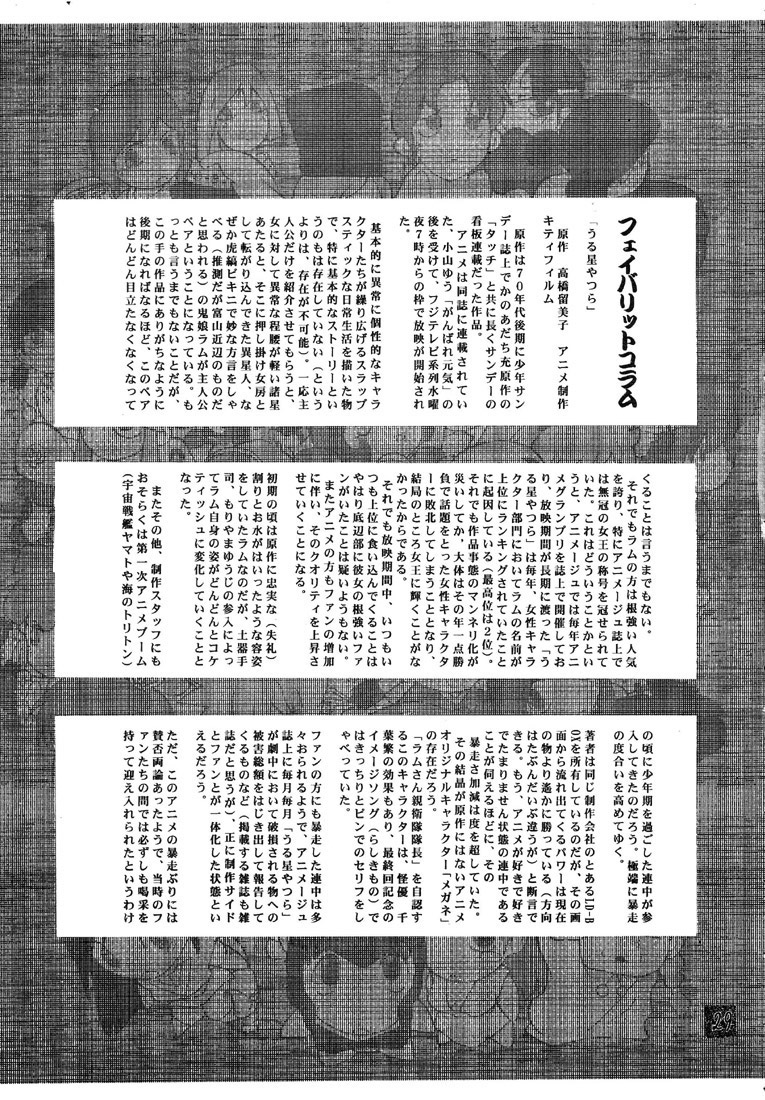 フェイバリットコラム
「うる星やつら」
原作　高橋留美子　アニメ制作
キティフィルム
　原作は７０年代後期に少年サン
デー誌上でかのあだち充原作の
「タッチ」と共に長くサンデーの
看板連載だった作品。
　アニメは同誌に連載されてい
た、小山ゆう「がんばれ元気」の
後を受けて、フジテレビ系列水曜
夜７時からの枠で放映が開始され
た。
　基本的に異常に個性的なキャラ
クターたちが繰り広げるスラップ
スティックな日常生活を描いた物
で、特に基本的なストーリーとい
うのもは存在していない（という
よりは、存在が不可能）。一応主
人公だけを紹介させてもらうと、
女に対して異常な程腰が軽い諸星
あたると、そこに押し掛け女房と
して転がり込んできた異星人、な
ぜか虎縞ビキニで妙な方言をしゃ
べる（推測だが富山近辺のものだ
と思われる）の鬼娘ラムが主人公
ペアということになっている。も
っとも言うまでもないことだが、
この手の作品にありがちなように
後期になればなるほど、このペア
はどんどん目立たなくなくなって
くることは言うまでもない。
　それでもラムの方は根強い人気
を誇り、特にアニメージュ誌上で
は無冠の女王の称号を冠せられて
いた。これはどういうことかとい
うと、アニメージュでは毎年アニ
メグランプリを誌上で開催してお
り、放映期間が長期に渡った「う
る星やつら」は毎年、女性キャラ
クター部門においてラムの名前が
上位にランキングされていたこと
に起因している（最高位は２位）。
それでも作品事態のマンネリ化が
災いしてか、大体はその年一点勝
負で話題をとった女性キャラクタ
ーに敗北してしまうこととなり、
結局のところ女王に輝くことがな
かったからである。
　それでも放映期間中、いつもい
つも上位に食い込んでくることは
やはり底辺部に彼女の根強いファ
ンがいたことは疑いようもない。
　またアニメの方もファンの増加
に伴い、そのクオリティを上昇さ
せていくことになる。
初期の頃は原作に忠実な（失礼）
割りとお水がはいったような容姿
をしていたラムなのだが、土器手
司、もりやまゆうじの参入によっ
てラム自身の姿がどんどんとコケ
ティッシュに変化していくことと
なった。
　またその他、制作スタッフにも
おそらくは第一次アニメブーム
（宇宙戦艦ヤマトや海のトリトン）
の頃に少年期を過ごした連中が参
入してきたのだろう。極端に暴走
の度合いを高めてゆく。
著者は同じ制作会社のとあるLD-B
OXを所有しているのだが、その画
面から流れ出てくるパワーは現在
の物より遙かに勝っている（方向
はたぶんだいぶ違うが）と断言で
きる。もう、アニメが好きで好き
でたまりません状態の連中である
ことが伺えるほどに、その
　暴走さ加減は度を超していた。
　その結晶が原作にはないアニメ
オリジナルキャラクター「メガネ」
の存在だろう。
「ラムさん親衛隊隊長」を自認す
るこのキャラクターは、怪優　千
葉繁の効果もあり、最終回記念の
イメージソング（らしきもの）で
はきっちりとピンでのセリフをし
ゃべっていた。
ファンの方にも暴走した連中は多
々おられるようで、アニメージュ
誌上に毎月毎月「うる星やつら」
が劇中において破損される物への
被害総額をはじき出して報告して
くるものなど（掲載する雑誌も雑
誌だと思うが）、正に制作サイド
とファンとが一体化した状態とい
えるだろう。
ただ、このアニメの暴走ぶりには
賛否両論あったようで、当時のフ
ァンたちの間では必ずしも喝采を
持って迎え入れられたというわけ
29